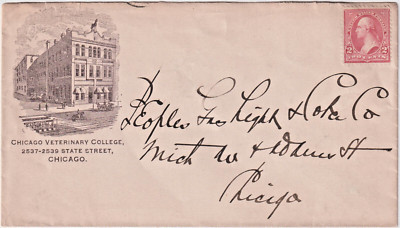 CHICAGO VETERINARY COLLEGE,
2537-2539 STATE STREET,
CHICAGO.
2 2
TWO CENTS
Peoples Gas Light & Coke Co
Mich Av & Adams St
Chicago